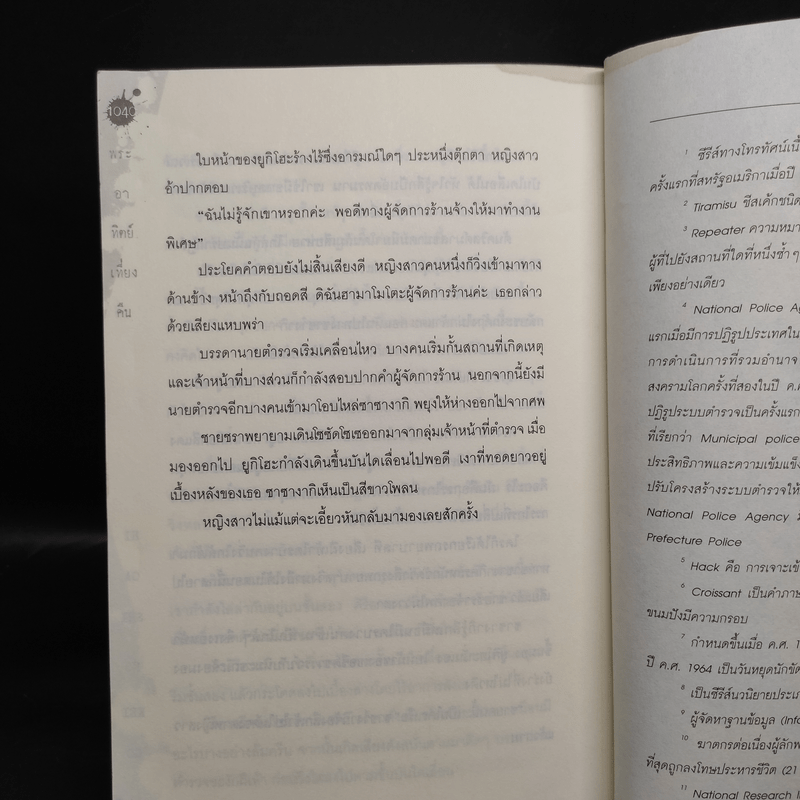 1040
พระ
อา
ทิตย์
เที่ยง
คืน
ใบหน้าของยูกิโฮะร้างไร้ซึ่งอารมณ์ใดๆ ประหนึ่งตุ๊กตา หญิงสาว
อ้าปากตอบ
“ฉันไม่รู้จักเขาหรอกค่ะ พอดีทางผู้จัดการร้านจ้างให้มาทำงาน
พิเศษ”
ประโยคคำตอบยังไม่สิ้นเสียงดี หญิงสาวคนหนึ่งก็วิ่งเข้ามาทาง
ด้านข้าง หน้าถึงกับถอดสี ดิฉันฮามาโมโตะผู้จัดการร้านค่ะ เธอกล่าว
ด้วยเสียงแหบพร่า
บรรดานายตำรวจเริ่มเคลื่อนไหว บางคนเริ่มกั้นสถานที่เกิดเหตุ
และเจ้าหน้าที่บางส่วนก็กำลังสอบปากคำผู้จัดการร้าน นอกจากนี้ยังมี
นายตำรวจอีกบางคนเข้ามาโอบไหล่ซาซางากิ พยุงให้ห่างออกไปจากศพ
ชายชราพยายามเดินโซซัดโซเซออกมาจากลุ่มเจ้าหน้าที่ตำรวจ เมื่อ
มองออกไป ยูกิโฮะกำลังเดินขึ้นบันไดเลื่อนไปพอดี เงาที่ทอดยาวอยู่
เบื้องหลังของเธอ ซาซางากิเห็นเป็นสีขาวโพลน
หญิงสาวไม่แม้แต่จะเอี้ยวหันกลับมามองเลยสักครั้ง
1 ซีรีส์ทางโทรทัศน์เนื้
ครั้งแรกที่สหรัฐอเมริกาเมื่อปี
2 Tiramisu ชีสเค้กชนิด
3 Repeater ความหมา
ผู้ที่ไปยังสถานที่ใดที่หนึ่งซ้ำๆ
เพียงอย่างเดียว
4 National Police Ag
แรกเมื่อมีการปฏิรูปประเทศใน
การดำเนินการที่รวมอำนาจ
สงครามโลกครั้งที่สองในปี ค.ศ
ปฏิรูประบบตำรวจเป็นครั้งแรก
ที่เรียกว่า Municipal police
ประสิทธิภาพและความเข้มแข็ง
ปรับโครงสร้างระบบตำรวจให้
National Police Agency
Prefecture Police
5 Hack คือ การเจาะเข้
6 Croissant เป็นคำภาษ
ขนมปังมีความกรอบ
7 กำหนดขึ้นเมื่อ ค.ศ. 1
ปี ค.ศ. 1964 เป็นวันหยุดนักขัต
8 เป็นซีรีส์นวนิยายประเภ
9 ผู้จัดหาฐานข้อมูล (Info
10 ฆาตกรต่อเนื่องผู้ลักพ
ที่สุดถูกลงโทษประหารชีวิต (21
11 National Research I